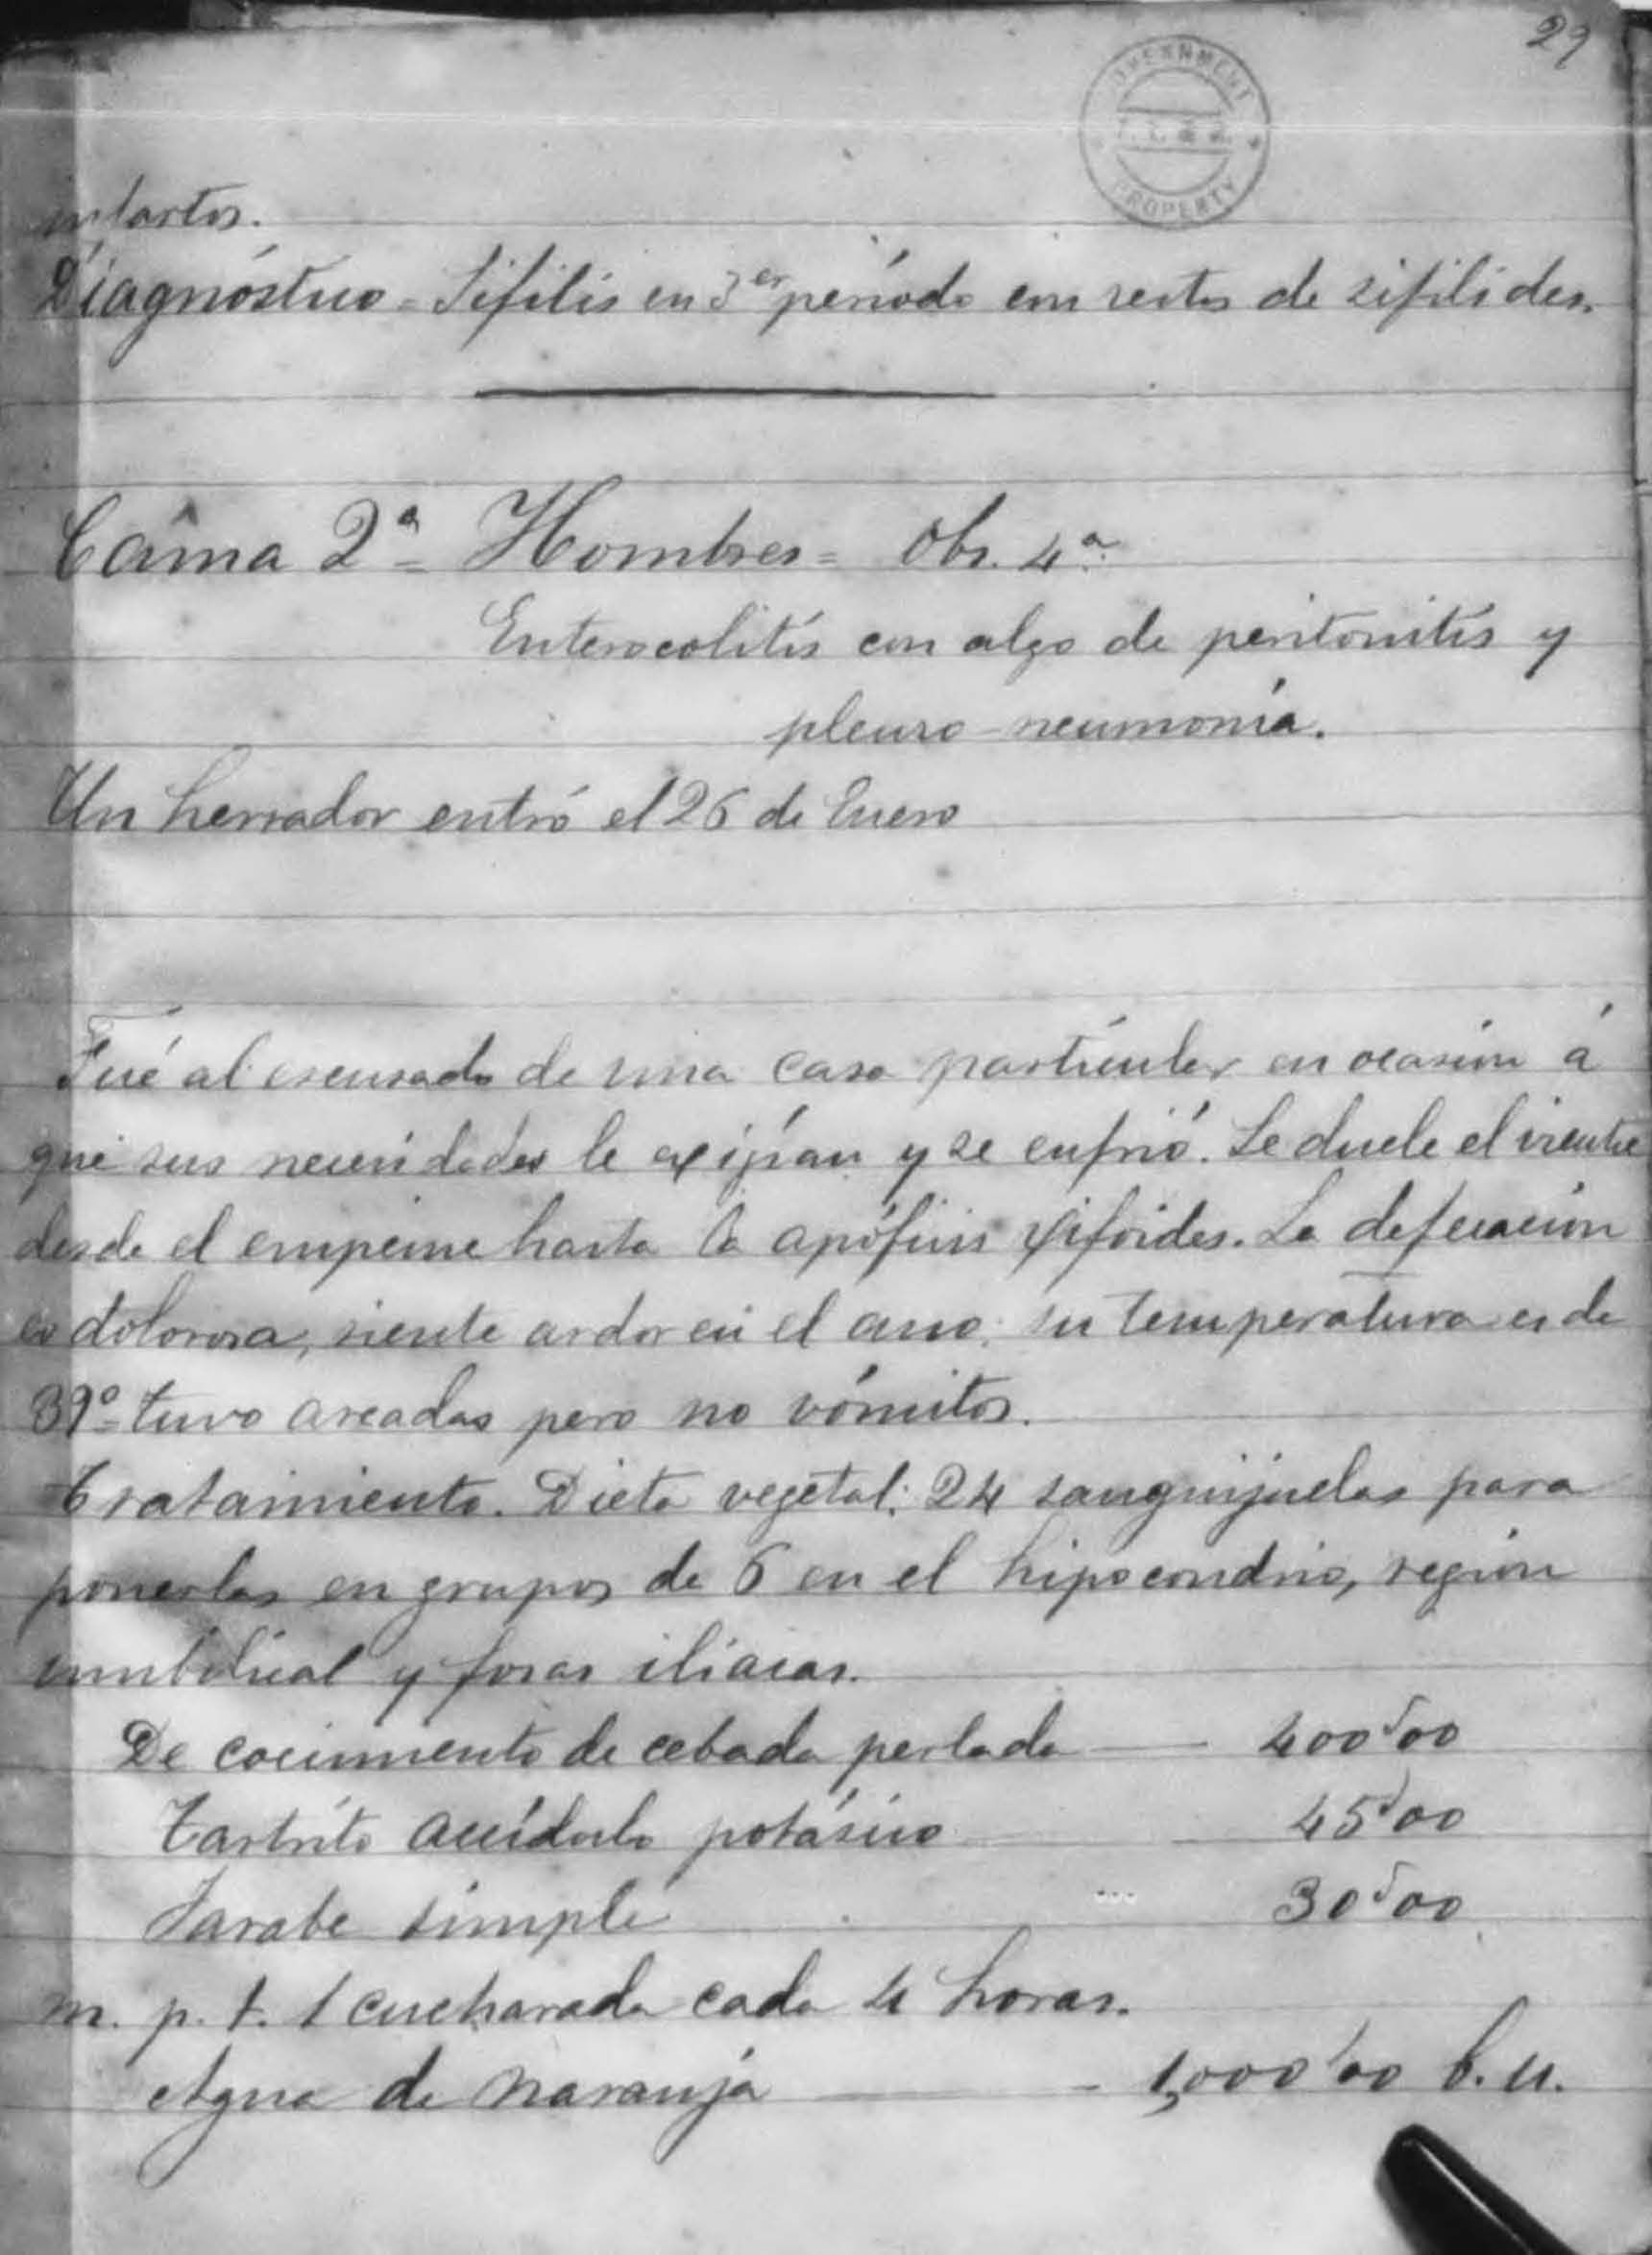 29
GOVERNMENT
PROPERTY
infartos.
Diagnóstico = Sífilis en 3er período con restos de sifílides.
Cama 2ª = Hombres = Obs. 4ª
Enterocolitis con algo de peritonitis y
pleuro-neumonía.
Un herrador entró el 26 de Enero
Fué al escusado de una casa particular en ocasión á
que sus necesidades le exigían y se enfrió. Le duele el vientre
desde el empeine hasta la apófisis xifoides. La defecación
es dolorosa, siente ardor en el ano; su temperatura es de
39º = tuvo arcadas pero no vómitos.
Tratamiento. Dieta vegetal; 24 sanguijuelas para
ponerlas en grupos de 6 en el hipocondrio, región
umbilical y fosas iliacas.
De cocimiento de cebada perlada — 400'00
Tartrito acídulo potásico — 45'00
Jarabe simple 30'00
m. p. t. 1 cucharada cada 4 horas.
Agua de naranja — 1,000'00 b. u.